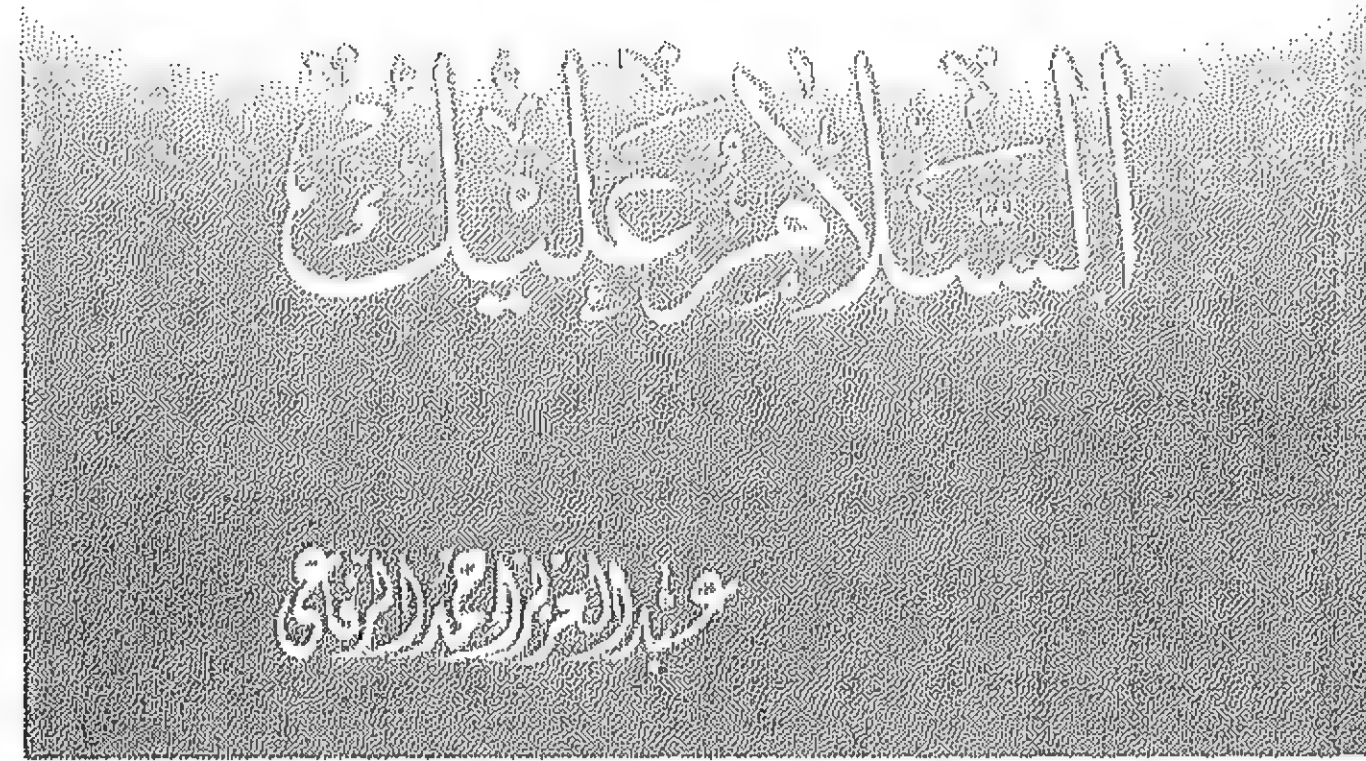 السَّلامُ عَلَيْك
عبد العزيز احمد الرفاعي